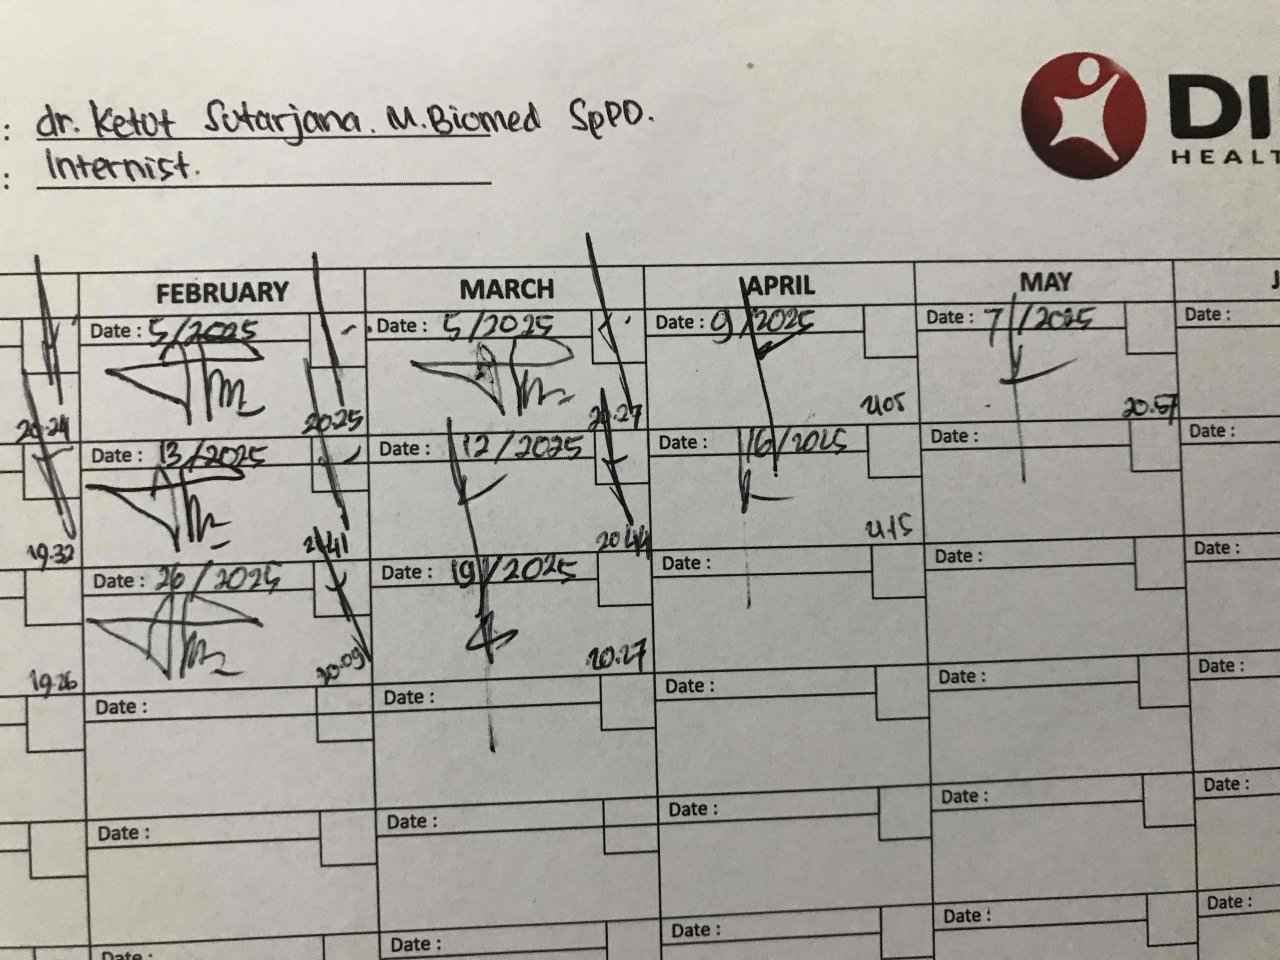 : dr. Ketut Sutarjana. M.Biomed SpPD.
: Internist.
DI
HEALT
FEBRUARY MARCH APRIL MAY J
Date : 5/2025 Date : 5/2025 Date : 9/2025 Date : 7/2025 Date :
20.24 20.25 20.27 21.05 20.57
Date : 13/2025 Date : 12/2025 Date : 16/2025 Date : Date :
19.32 21.41 20.44 21.15
Date : 26/2025 Date : 19/2025 Date : Date : Date :
19.26 20.09 20.27
Date : Date : Date : Date : Date :
Date : Date : Date : Date : Date :
Date : Date : Date : Date : Date :